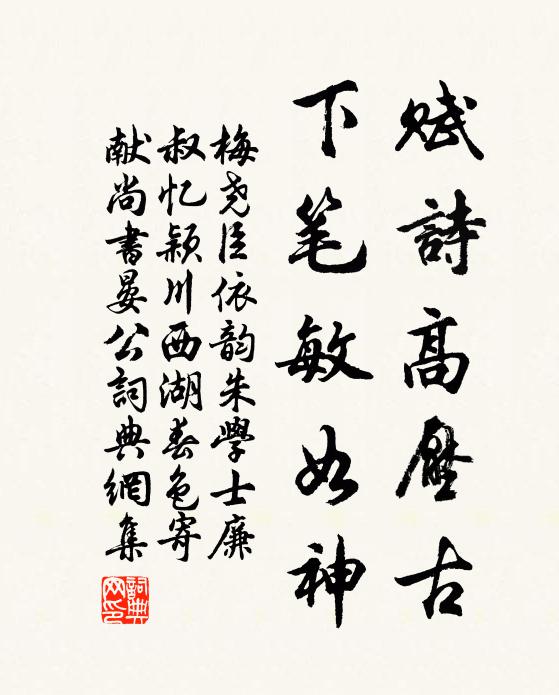 赋詩高壓古
下笔敏如神
梅尧臣依韵朱學士廉
叔忆颍川西湖春色寄
献尚書晏公詞典網集
詞典網印